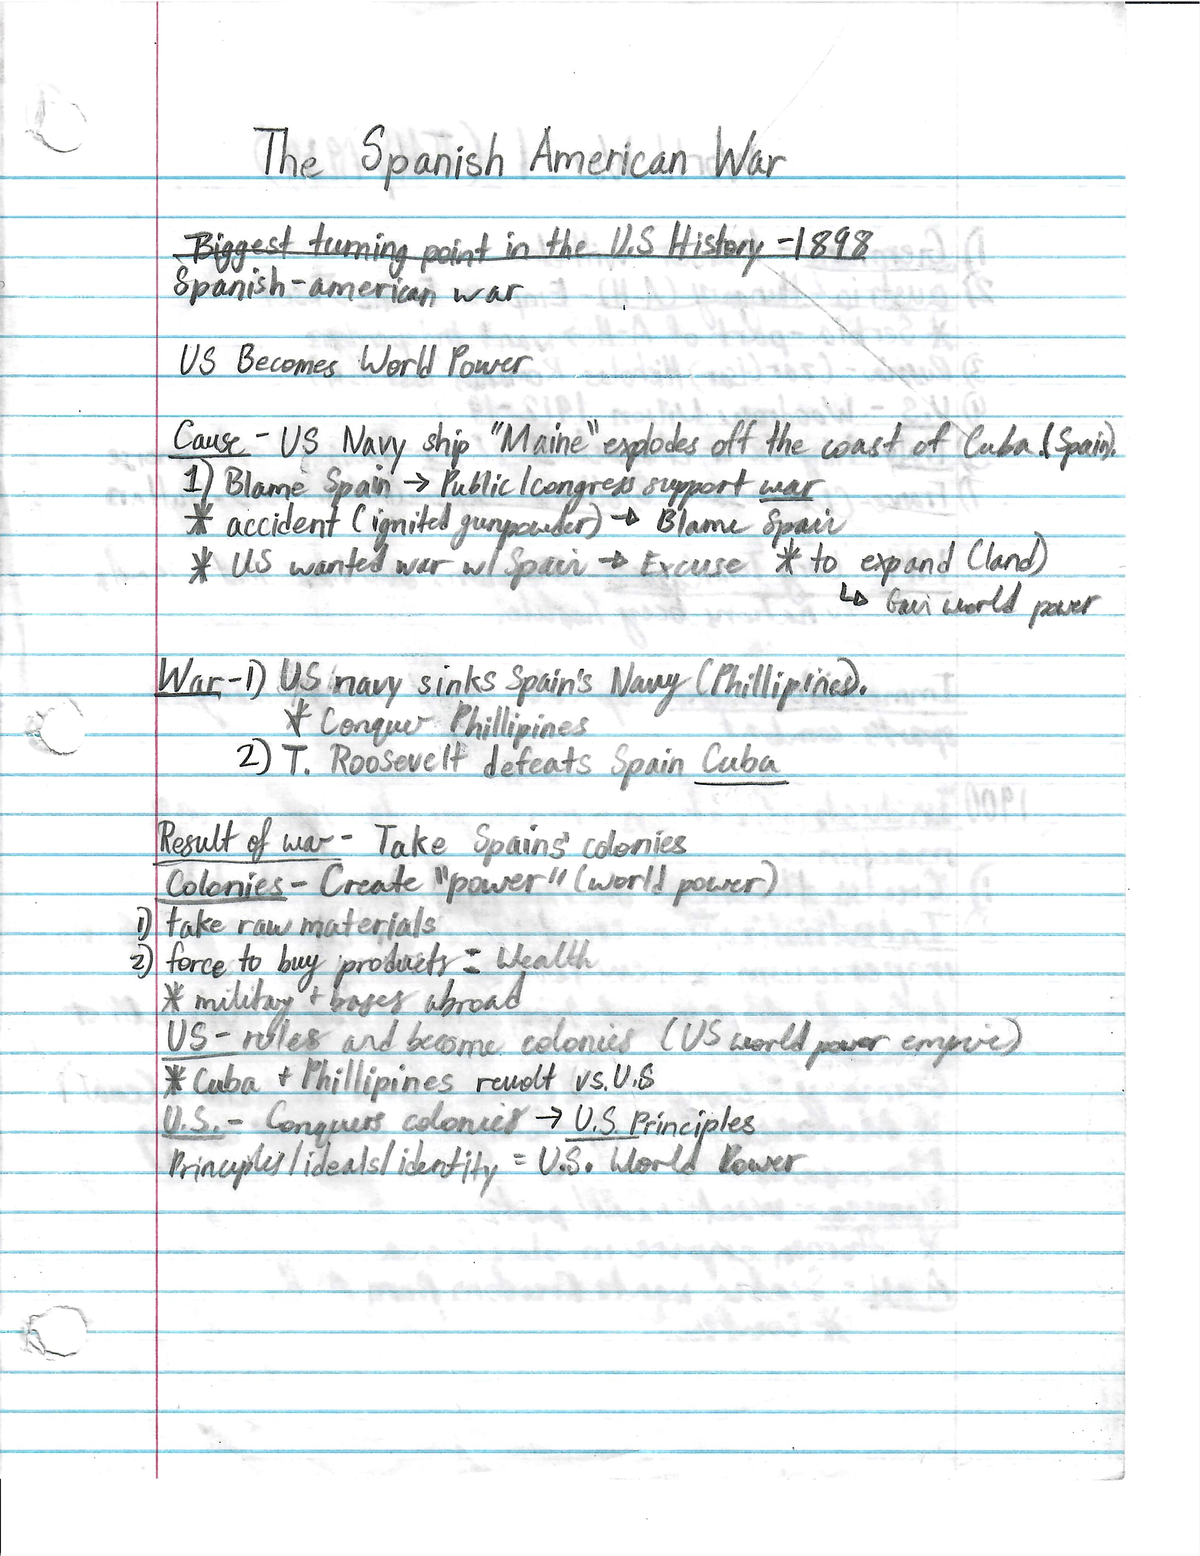 The Spanish American War
Biggest turning point in the U.S History -1898
Spanish-american war
US Becomes World Power
Cause - US Navy ship "Maine" explodes off the coast of Cuba (Spain).
1) Blame Spain → Public/congress support war
* accident (ignited gunpowder) → Blame Spain
* US wanted war w/ Spain → Excuse * to expand (land)
↳ Gain world power
War-1) US navy sinks Spain's Navy (Phillipines).
* Conquer Phillipines
2) T. Roosevelt defeats Spain Cuba
Result of war - Take Spains' colonies
Colonies - Create "power" (world power)
1) take raw materials
2) force to buy products = Wealth
* military + bases abroad
US - rules and become colonies (US world power empire)
* Cuba + Phillipines revolt vs. U.S
U.S. - Conquers colonies → U.S. Principles
Principles/ideals/identity = U.S. World Power